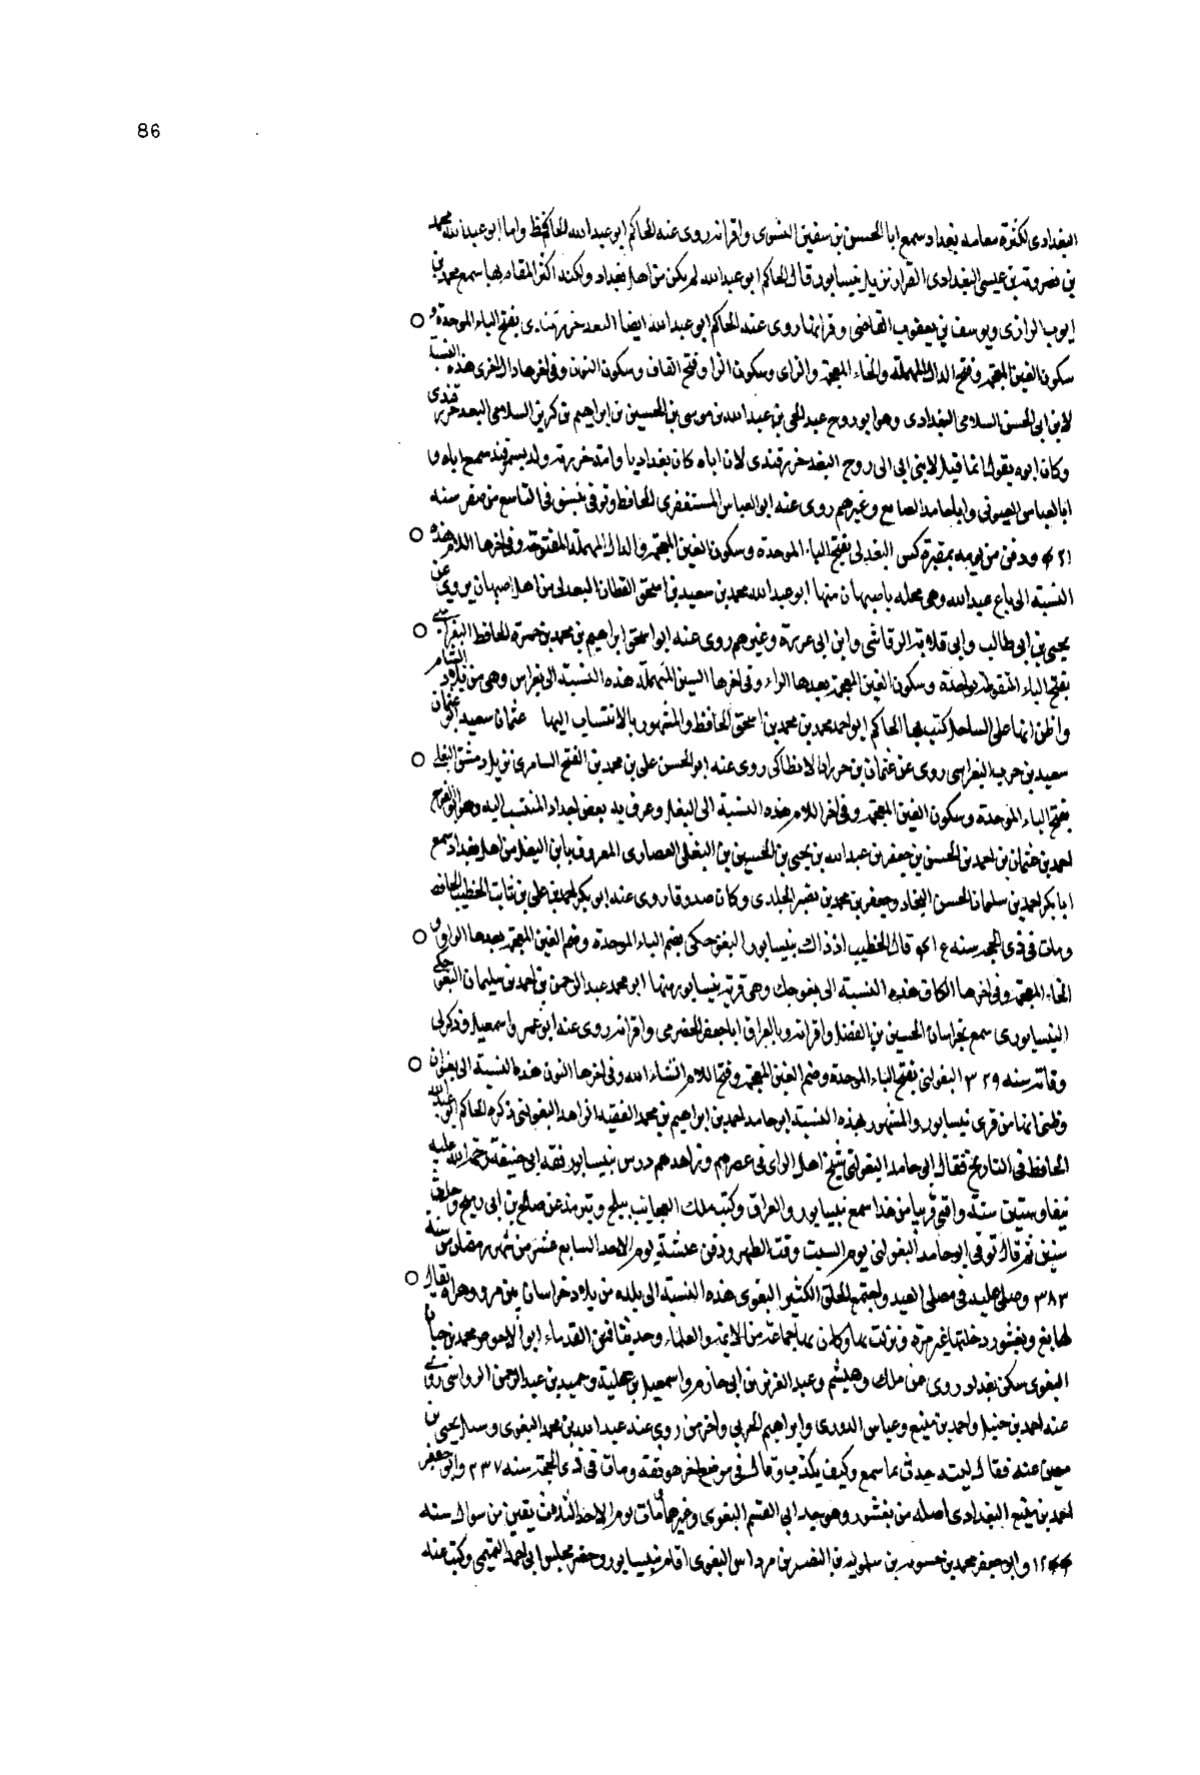 86
البغدادى لكثرة مقامه ببغداد سمع ابا الحسن بن سفين النسوى واقرانه روى عنه الحاكم ابو عبد الله الحافظ واما ابو عبد الله محمد
بن عيسى البغدادى القزاز نزيل نيسابور قال الحاكم ابو عبد الله لم يكن من اهل بغداد ولكنه اكثر المقام بها سمع محمد بن
ايوب الرازى ويوسف بن يعقوب القاضى واقرانهما روى عنه الحاكم ابو عبد الله ايضا البغدخزرقندى بفتح الباء الموحدة و
سكون الغين المعجمة وفتح الدال المهملة والخاء المعجمة والزاى وسكون الرا وفتح القاف وسكون النون وفى اخرها دال اخرى هذه النسبة
لابن ابى الحسن السلامى البغدادى وهو ابو روح عبد الحى بن عبد الله بن موسى بن الحسين بن ابراهيم بن كريز السلامى البغدخزرقندى
وكان ابوه يقول انما قيل لابنى ابى روح البغدخزرقندى لان اباه كان بغداديا وامه خزرية ولد بسمرقند سمع اباه و
ابا العباس وابا حامد الصايع وغيرهم روى عنه ابو العباس المستغفرى الحافظ وتوفى بنسف فى التاسع من صفر سنه
۴۲۱ ودفن من يومه بمقبرة كس البغدلى بفتح الباء الموحدة وسكون الغين المعجمة والدال المهملة المفتوحة وفى اخرها اللام هذه
النسبة الى باغ عبد الله وهى محله باصبهان منها ابو عبد الله محمد بن سعيد بن اسحق القطان البغدلى من اهل اصبهان يروى عن
يحيى بن ابى طالب وابى قلابة الرقاشى وابن ابى غرزة وغيرهم روى عنه ابو اسحق ابراهيم بن محمد بن حمزة الحافظ البغراسى
بفتح الباء المنقوطة بواحدة وسكون الغين المعجمة بعدها الراء وفى اخرها السين المهملة هذه النسبة الى بغراس وهى من بلاد الشام
واظن انها على الساحل كتب بها الحاكم ابو احمد محمد بن محمد بن اسحق الحافظ والمشهور بالانتساب اليها عثمان سعيد ابو عثمان
سعيد بن حرب البغراسى روى عن عثمان بن خرزاد الانطاكى روى عنه ابو الحسن على بن محمد بن الفتح السامرى نزيل دمشق البغلى
بفتح الباء الموحدة وسكون الغين المعجمة وفى اخر اللام هذه النسبة الى البغل وعرف به بعض اجداد المنتسب اليه وهو ابو الفرج
احمد بن عثمان بن احمد بن الحسن بن جعفر بن عبد الله بن يحيى بن الحسين بن البغلى العصارى المعروف بابن البغل من اهل بغداد سمع
ابا بكر احمد بن سلمان الحسن النجاد وجعفر بن محمد بن نصير الخلدى وكان صدوقا روى عنه ابو بكر احمد بن على بن ثابت الخطيب الحافظ
ومات فى ذى الحجة سنه قال الخطيب اذ ذاك بنيسابور البغوخكى بضم الباء الموحدة وضم الغين المعجمة بعدها الواو و
الخاء المعجمة وفى اخرها الكاف هذه النسبة الى بغوخك وهى قرية بنيسابور منها ابو محمد عبد الرحمن بن احمد بن سليمان البغوخكى
النيسابورى سمع بخراسان الحسين بن الفضل واقرانه وبالعراق ابا جعفر الحضرمى واقرانه روى عنه ابو عمر واسمعيل وذكر لى
وفاته سنه ۳۲۹ البغولنى بفتح الباء الموحدة وضم الغين المعجمة وفتح اللام انشاء الله وفى اخرها النون هذه النسبة الى بغولن
وظنى انها من قرى نيسابور والمشهور بهذه النسبة ابو حامد احمد بن ابراهيم بن محمد الفقيه الزاهد البغولنى ذكره الحاكم ابو عبد الله
الحافظ فى التاريخ فقال ابى حامد البغولنى شيخ اهل الراى فى عصرهم وزاهدهم درس بنيسابور فقه ابى حنيفة رحمة الله عليه
نيفا وستين سنة وافتى قريبا من هذا سمع بنيسابور والعراق وكتب ببلخ وترمذ عن صالح بن ابى رميح
سنين ثم قال توفى ابو حامد البغولنى يوم السبت وقت الظهر ودفن عشية يوم الاحد السابع عشر من شهر رمضان من سنة
۳۸۳ وصلى عليه فى مصلى العيد واجتمع الخلق الكثير البغوى هذه النسبة الى بلده من بلاد خراسان بين مرو وهراة يقال
لها بغ وبغشور دخلتها غير مرة ونزلت بها وكان بها جماعة من الايمة والعلماء وحدثنا فمن القدماء ابو الاحوص محمد بن حيان
البغوى سكن بغداد روى عن ملك وهيشم وعبد العزيز بن ابى حازم واسمعيل بن علية وحميد بن عبد الرحمن الرواسى روى
عنه احمد بن حنبل واحمد بن منيع وعباس الدورى وابراهيم الحربى واخر من روى عنه عبد الله بن محمد البغوى وسال يحيى بن
معين عنه فقال ليته حدث بما سمع وكيف يكذب وقال فى موضع اخر هو ثقة ومات فى ذى الحجة سنه ۲۳۷ وابو جعفر
احمد بن منيع البغدادى اصله من بغشور وهو جد ابى القسم البغوى وغيرهما مات يوم الاحد لثلاث بقين من سوال سنه
وابو جعفر محمد بن بن سلمويه بن النضر بن مرداس البغوى اقام بنيسابور وحضر مجلس ابى احمد التميمى وكتب عنه